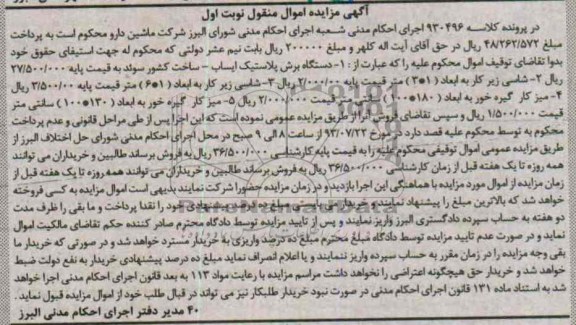 آگهی مزایده اموال منقول نوبت اول
در پرونده کلاسه ۹۳۰۴۹۶ اجرای احکام مدنی شعبه اجرای احکام مدنی شورای البرز شرکت ماشین دارو محکوم است به پرداخت
مبلغ ۴۸/۲۶۲/۵۷۲ ریال در حق آقای آیت اله کلهر و مبلغ ۲۰۰۰۰۰۰ ریال بابت نیم عشر دولتی که محکوم له جهت استیفای حقوق خود
بدوا تقاضای توقیف اموال محکوم علیه را که عبارت از : ۱- دستگاه برش پلاستیک ایساب - ساخت کشور سوئد به قیمت پایه ۲۷/۵۰۰/۰۰۰
ریال ۲- شاسی زیر کار به ابعاد ( ۱*۳ ) متر قیمت پایه ۲/۰۰۰/۰۰۰ ریال ۳- شاسی زیر کار به ابعاد ( ۱*۶ ) متر قیمت پایه ۳/۵۰۰/۰۰۰ ریال
۴- میز کار گیره خور به ابعاد ( ۱۸۰*۱۰۰ ) سانتی متر قیمت ۲/۰۰۰/۰۰۰ ریال ۵- میز کار گیره خور به ابعاد ( ۱۳۰*۱۰۰ ) سانتی متر
قیمت ۱/۵۰۰/۰۰۰ ریال و سپس تقاضای فروش آنرا از طریق مزایده عمومی نموده است که این اجرا پس از طی مراحل قانونی و عدم پرداخت
محکوم به توسط محکوم علیه قصد دارد در مورخ ۹۳/۰۷/۲۲ از ساعت ۸ الی ۹ صبح در محل اجرای احکام مدنی شورای حل اختلاف البرز از
طریق مزایده عمومی اموال توقیفی محکوم علیه را به قیمت پایه کارشناسی ۳۶/۵۰۰/۰۰۰ ریال به فروش برساند طالبین و خریداران می توانند
همه روزه تا یک هفته قبل از زمان کارشناسی ۳۶/۵۰۰/۰۰۰ ریال به فروش برساند طالبین و خریداران می توانند همه روزه تا یک هفته قبل از
زمان مزایده از اموال مورد مزایده با هماهنگی این اجرا بازدید و در زمان مزایده حضور شرکت نمایند بدیهی است اموال مزایده به کسی فروخته
خواهد شد که بالاترین مبلغ را پیشنهاد نمایند و خریدار می بایستی مبلغ ده درصد پیشنهادی خود را نقدا پرداخت و ما بقی را ظرف مدت
دو هفته به حساب سپرده دادگستری البرز واریز نمایند و پس از تایید مزایده توسط دادگاه محترم صادر کننده حکم تقاضای مالکیت اموال
نماید و در صورت عدم تایید مزایده توسط دادگاه مبلغ محترم مبلغ ده درصد واریزی به خریدار مسترد خواهد شد و در صورتی که خریدار ما
بقی وجه مزایده را در زمان مقرر به حساب سپرده واریز ننمایند و یا اعلام انصراف نماید مبلغ ده درصد پیشنهادی خریدار به نفع دولت ضبط
خواهد شد و خریدار حق هیچگونه اعتراضی را نخواهد داشت مراسم مزایده با رعایت مواد ۱۱۳ به بعد قانون اجرای احکام مدنی اجرا خواهد
شد به استناد ماده ۱۳۱ قانون اجرای احکام مدنی در صورت نبود خریدار طلبکار نیز می تواند در قبال طلب خود از اموال مزایده قبول نماید .
۴۰ مدیر دفتر اجرای احکام مدنی البرز